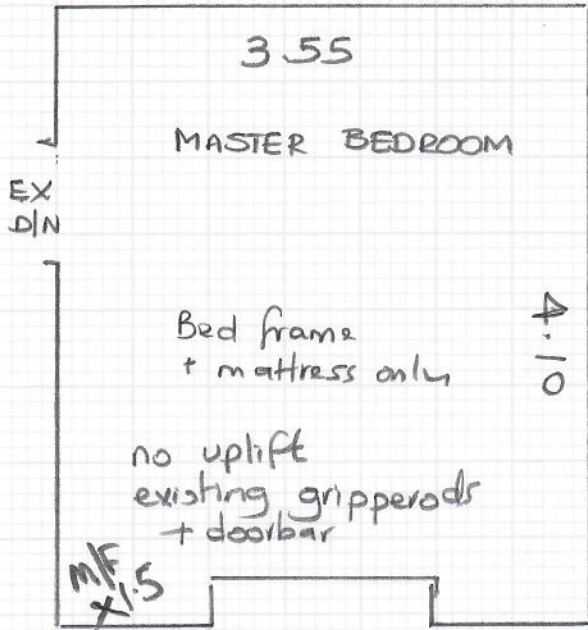 3.55
MASTER BEDROOM
EX
D/N
Bed frame
+ mattress only
4.10
no uplift
existing gripperods
+ doorbar
M/F
x1.5